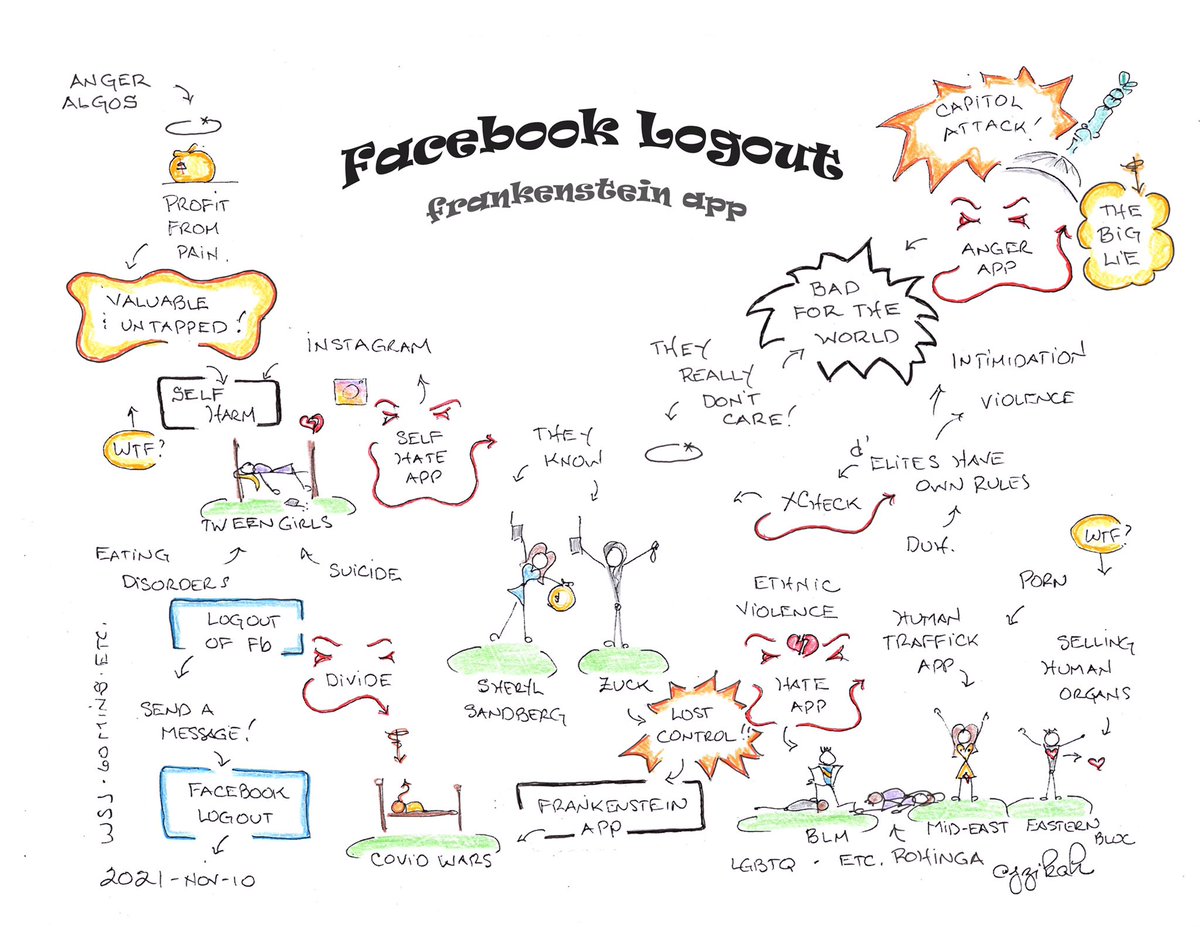 Facebook Logout
frankenstein app
ANGER
ALGOS
$
PROFIT
FROM
PAIN.
VALUABLE
& UNTAPPED!
SELF
HARM
WTF?
TWEEN GIRLS
EATING
DISORDERS
SUICIDE
INSTAGRAM
SELF
HATE
APP
LOGOUT
OF Fb
SEND A
MESSAGE!
FACEBOOK
LOGOUT
2021-NOV-10
WSJ. 60 MINS. ETC.
DIVIDE
COVID WARS
THEY
KNOW
SHERYL
SANDBERG
ZUCK
LOST
CONTROL!!
FRANKENSTEIN
APP
THEY
REALLY
DON'T
CARE!
BAD
FOR THE
WORLD
CAPITOL
ATTACK!
ANGER
APP
THE
BIG
LIE
INTIMIDATION
VIOLENCE
d'
ELITES HAVE
OWN RULES
XCHECK
DUH.
WTF?
PORN
HUMAN
TRAFFICK
APP
SELLING
HUMAN
ORGANS
ETHNIC
VIOLENCE
HATE
APP
BLM
LGBTQ - ETC. ROHINGA
MID-EAST
EASTERN
BLOC